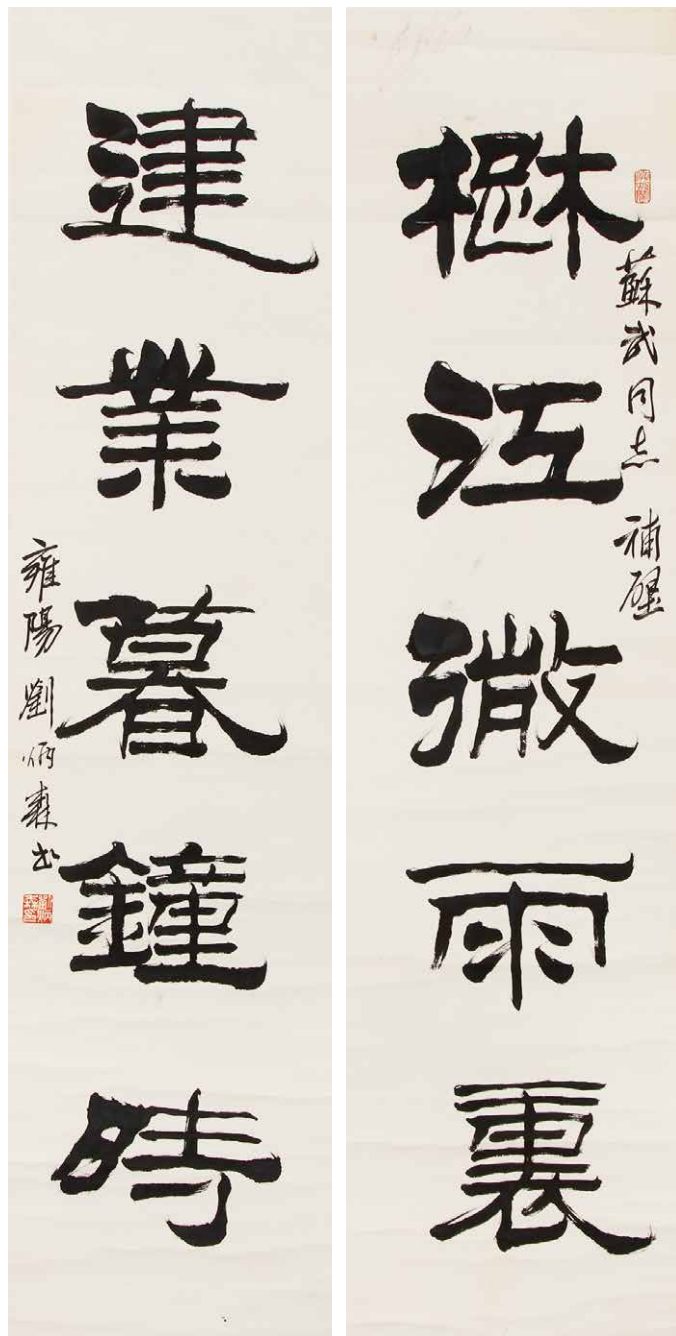 楚江微雨裏
蘇武同志 補壁
建業暮鐘時
雍陽劉炳森书